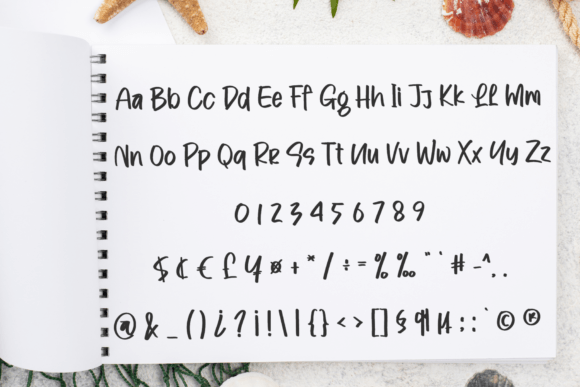 Aa Bb Cc Dd Ee Ff Gg Hh Ii Jj Kk Ll Mm
Nn Oo Pp Qq Rr Ss Tt Uu Vv Ww Xx Yy Zz
0 1 2 3 4 5 6 7 8 9
$ ¢ € £ ¥ ¤ + * / ÷ = % ‰ " ' # - ^ , .
@ & _ ( ) ¿ ? ¡ ! \ | { } < > [ ] § ¶ µ : : ` © ®